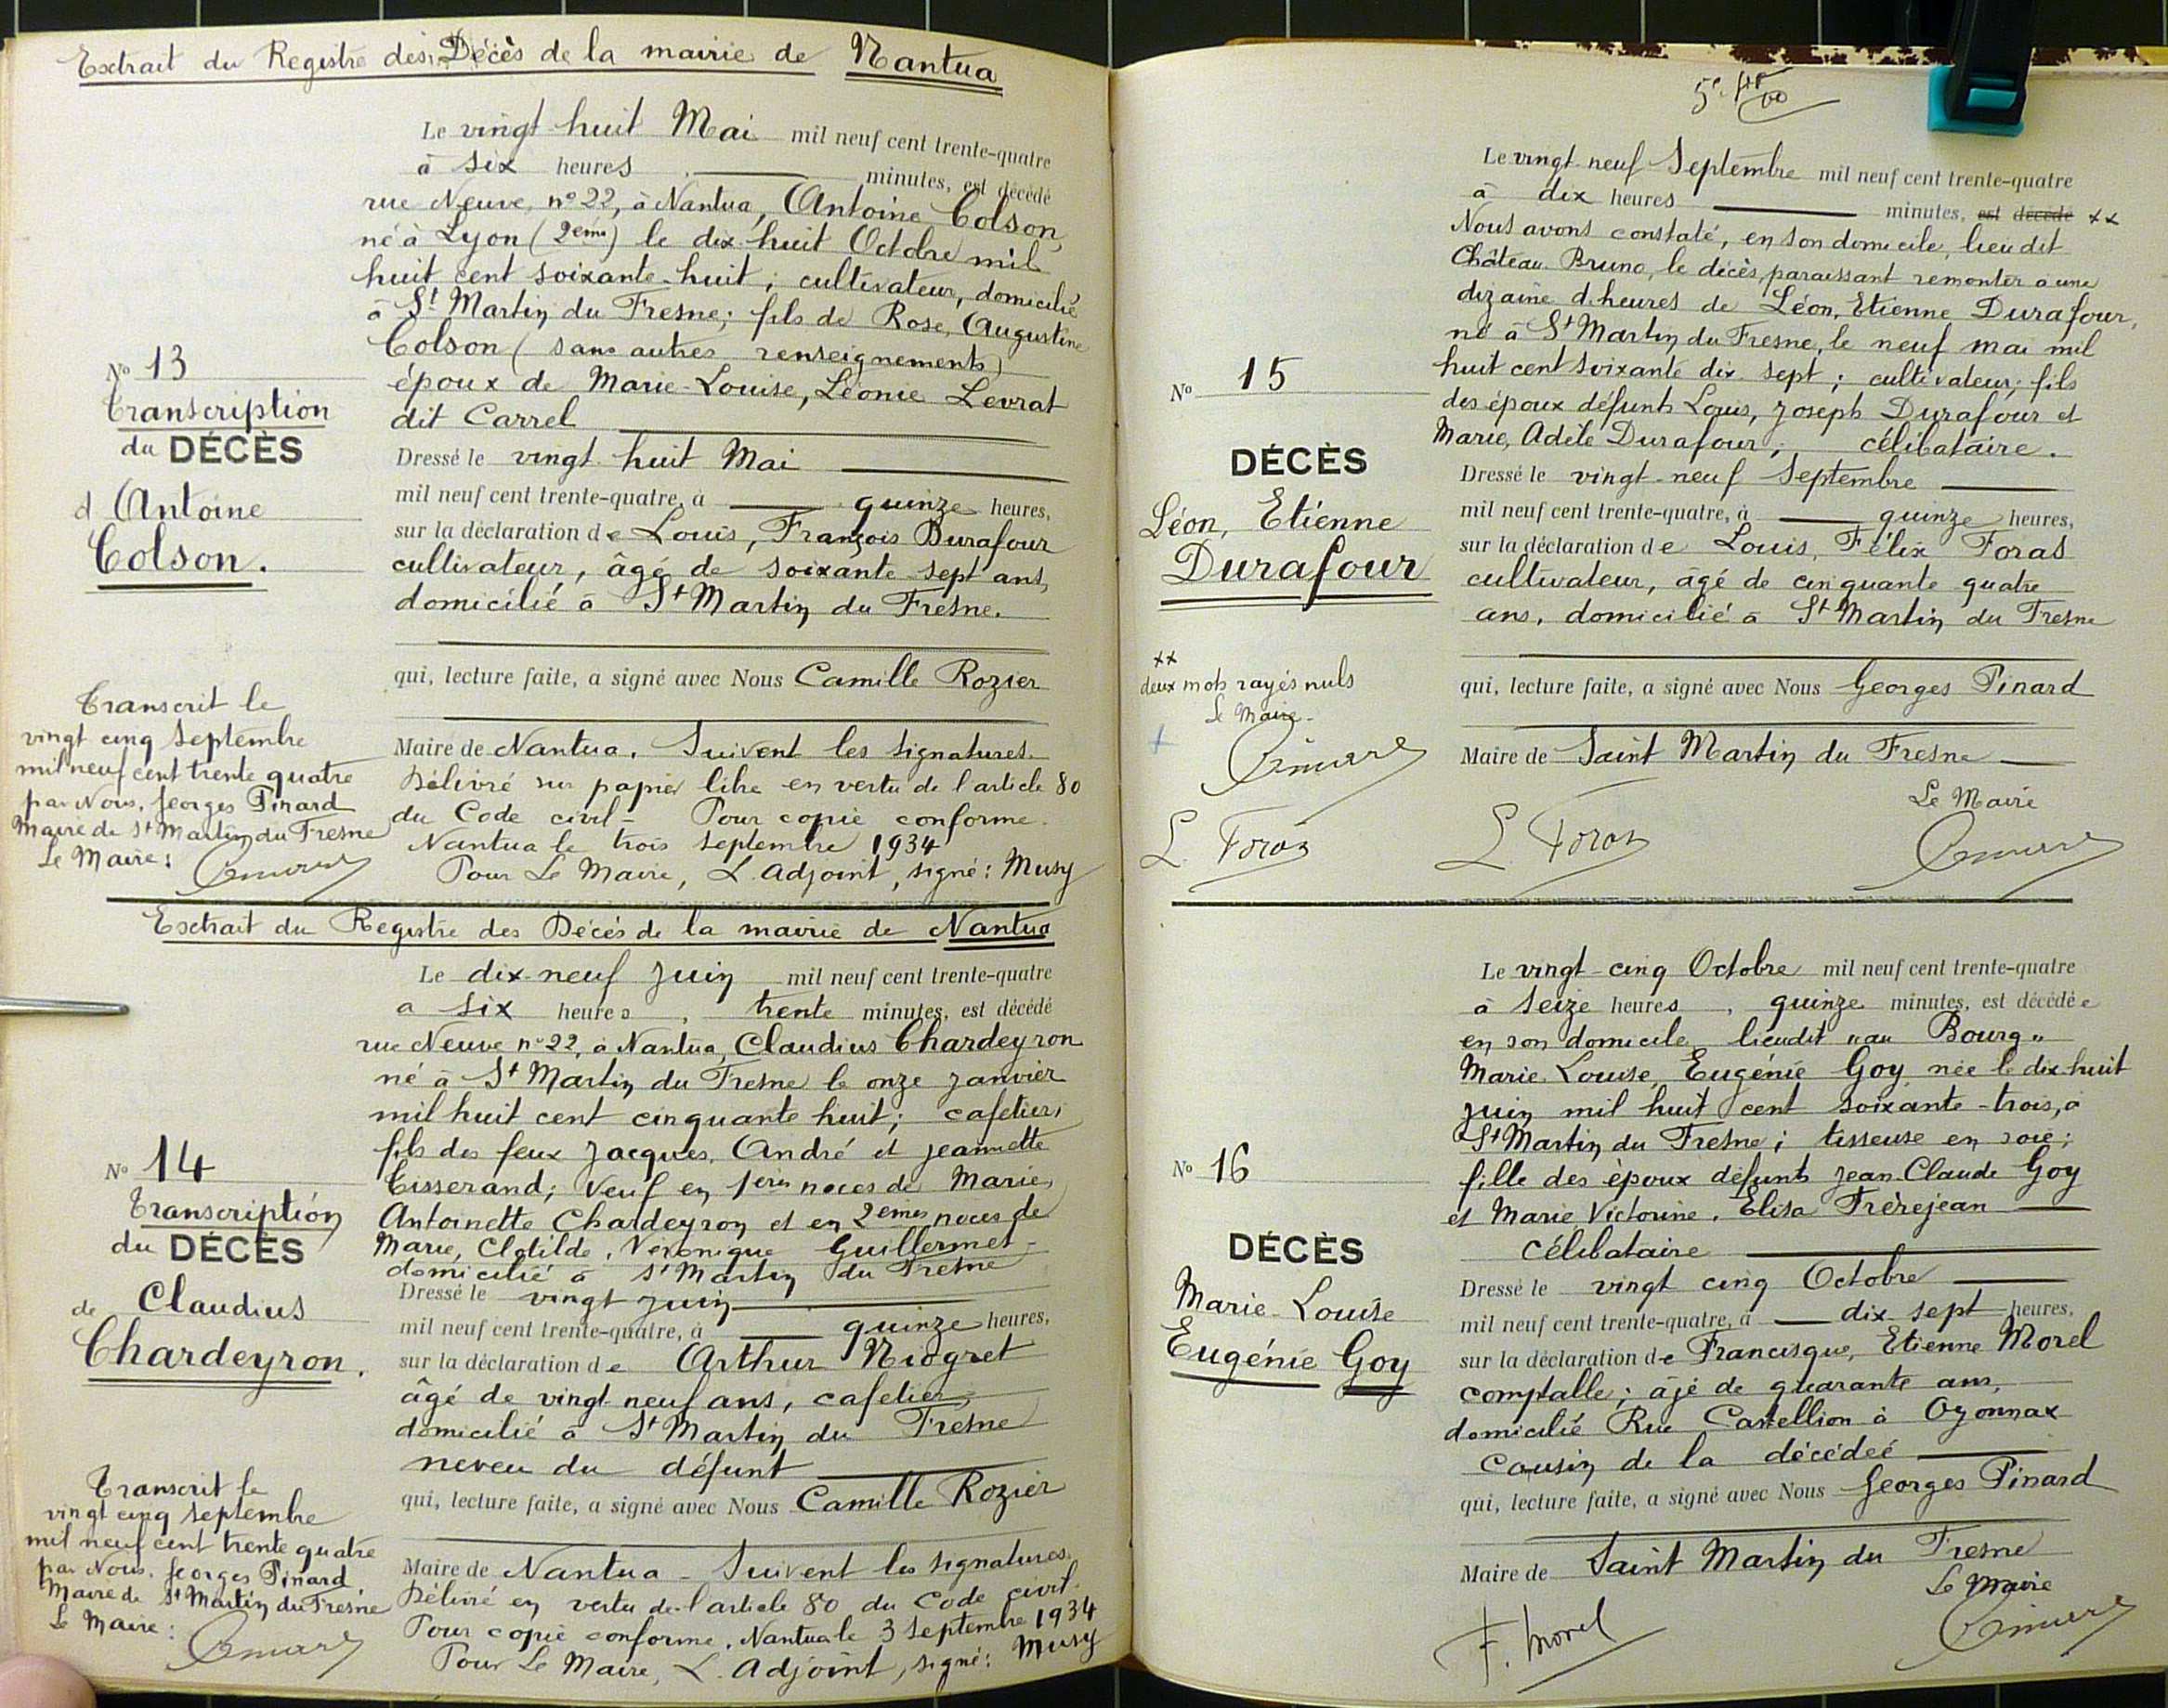 Extrait du Registre des Décès de la mairie de Nantua
Le vingt huit Mai mil neuf cent trente-quatre
à six heures minutes, est décédé
rue Neuve, n° 22, à Nantua, Antoine Colson,
né à Lyon (2ème) le dix-huit Octobre mil
huit cent soixante-huit ; cultivateur, domicilié
à St Martin du Fresne ; fils de Rose, Augustine
Colson (sans autres renseignements)
époux de Marie-Louise, Léonie Levrat
dit Carrel
Dressé le vingt huit Mai
mil neuf cent trente-quatre, à quinze heures,
sur la déclaration de Louis, François Durafour
cultivateur, âgé de soixante-sept ans,
domicilié à St Martin du Fresne.
qui, lecture faite, a signé avec Nous Camille Rozier
Maire de Nantua. Suivent les signatures.
Délivré sur papier libre en vertu de l'article 80
du Code civil - Pour copie conforme.
Nantua le trois septembre 1934
Pour Le Maire, L'Adjoint, signé : Musy
N° 13
Transcription
du DÉCÈS
d'Antoine
Colson.
Transcrit le
vingt cinq Septembre
mil neuf cent trente quatre
par Nous, Georges Pinard
Maire de St Martin du Fresne
Le Maire :
Extrait du Registre des Décès de la mairie de Nantua
Le dix-neuf Juin mil neuf cent trente-quatre
à six heures, trente minutes, est décédé
rue Neuve n° 22, à Nantua, Claudius Chardeyron
né à St Martin du Fresne le onze Janvier
mil huit cent cinquante huit ; cafetier,
fils des feux Jacques, André et Jeannette
Tisserand ; Veuf en 1ères noces de Marie,
Antoinette Chardeyron et en 2emes noces de
Marie, Clotilde, Véronique Guillermet -
domicilié à St Martin du Fresne
Dressé le vingt Juin
mil neuf cent trente-quatre, à quinze heures,
sur la déclaration de Arthur Niogret
âgé de vingt-neuf ans, cafetier,
domicilié à St Martin du Fresne
neveu du défunt
qui, lecture faite, a signé avec Nous Camille Rozier
Maire de Nantua - Suivent les signatures.
Délivré en vertu de l'article 80 du Code civil.
Pour copie conforme. Nantua le 3 Septembre 1934
Pour Le Maire, L'Adjoint, signé : Musy
N° 14
Transcription
du DÉCÈS
de Claudius
Chardeyron.
Transcrit le
vingt cinq Septembre
mil neuf cent trente quatre
par Nous, Georges Pinard
Maire de St Martin du Fresne
Le Maire :
Le vingt-neuf Septembre mil neuf cent trente-quatre
à dix heures minutes, est décédé xx
Nous avons constaté, en son domicile, lieu dit
Château Bruno, le décès, paraissant remonter à une
dizaine d'heures de Léon, Etienne Durafour,
né à St Martin du Fresne, le neuf mai mil
huit cent soixante dix-sept ; cultivateur ; fils
des époux défunts Louis, Joseph Durafour et
Marie, Adèle Durafour ; célibataire.
Dressé le vingt-neuf Septembre
mil neuf cent trente-quatre, à quinze heures,
sur la déclaration de Louis, Félix Foras
cultivateur, âgé de cinquante quatre
ans, domicilié à St Martin du Fresne
qui, lecture faite, a signé avec Nous Georges Pinard
Maire de Saint Martin du Fresne
Le Maire
L. Foras
N° 15
DÉCÈS
Léon, Etienne
Durafour
xx
deux mots rayés nuls
Le Maire
L. Foras
Le vingt-cinq Octobre mil neuf cent trente-quatre
à seize heures, quinze minutes, est décédée
en son domicile lieudit "au Bourg"
Marie Louise Eugénie Goy née le dix huit
Juin mil huit cent soixante-trois, à
St Martin du Fresne ; tisseuse en soie ;
fille des époux défunts Jean-Claude Goy
et Marie, Victorine, Elisa Frèrejean
célibataire
Dressé le vingt cinq Octobre
mil neuf cent trente-quatre, à dix sept heures,
sur la déclaration de Francisque, Etienne Morel
comptable ; âgé de quarante ans,
domicilié Rue Castellion à Oyonnax
cousin de la décédée
qui, lecture faite, a signé avec Nous Georges Pinard
Maire de Saint Martin du Fresne
Le Maire
F. Morel
N° 16
DÉCÈS
Marie-Louise
Eugénie Goy